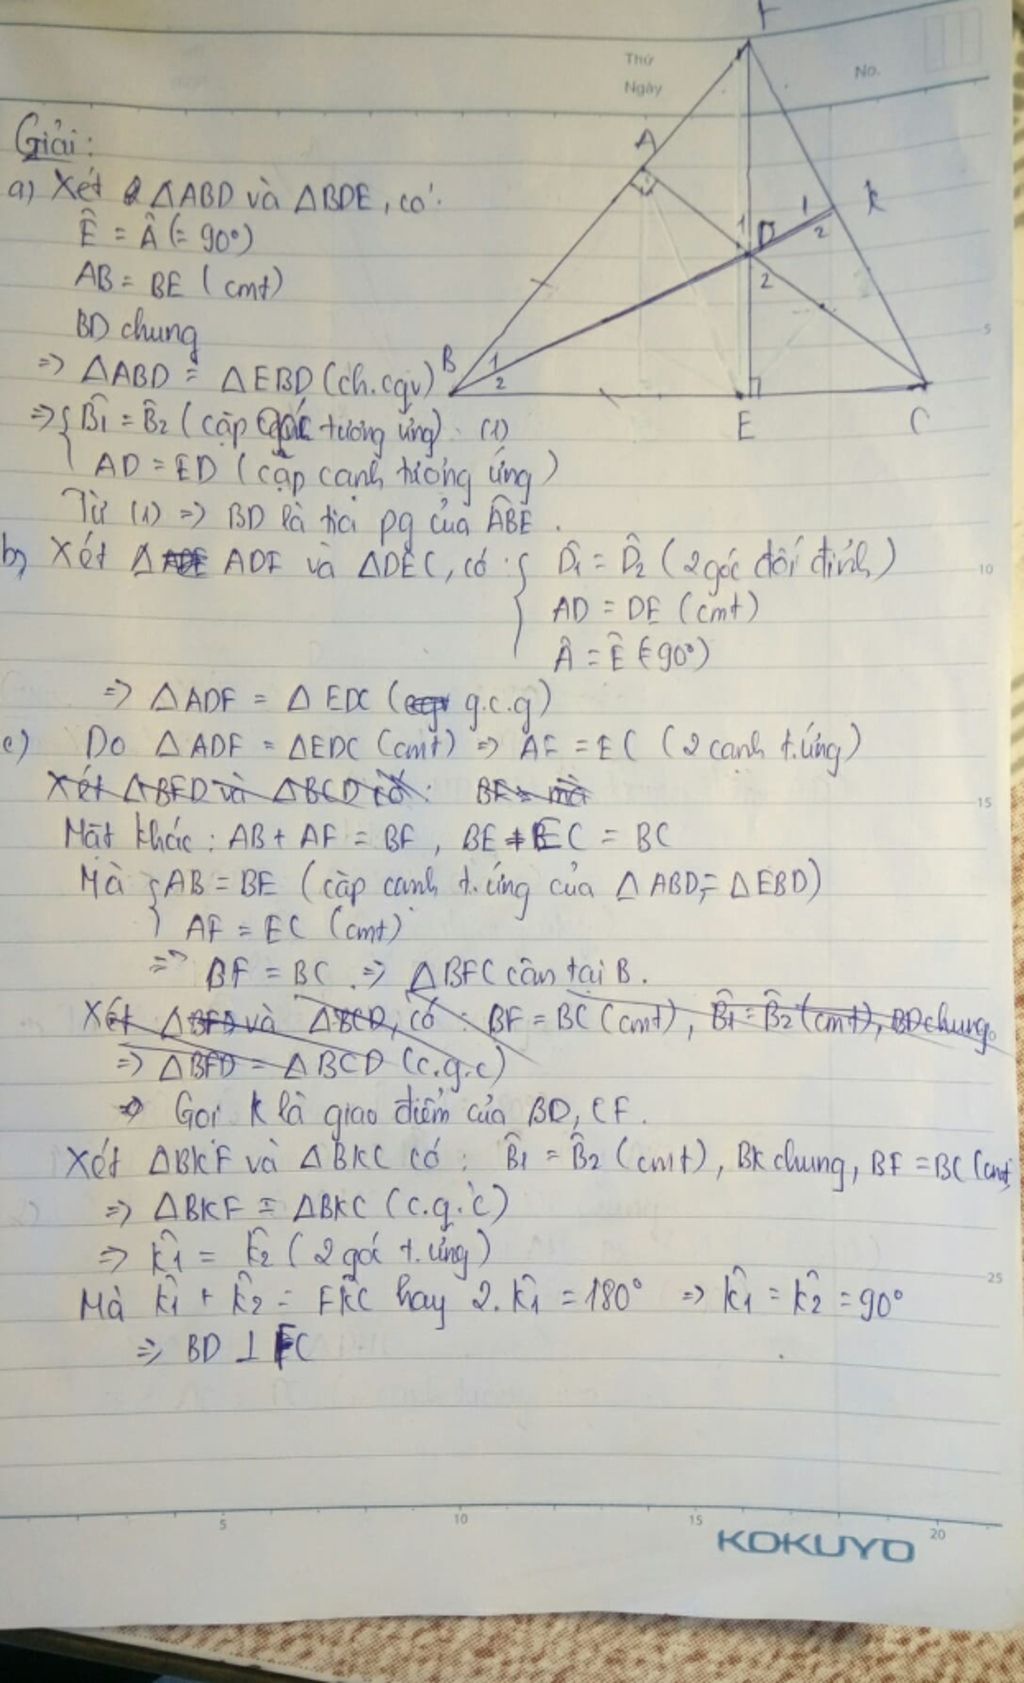 Thứ
Ngày
No.
Giải:
a) Xét 2 ΔABD và ΔBDE, có:
Ê = Â (= 90°)
AB = BE (cmt)
BD chung
=> ΔABD = ΔEBD (ch.cgv)
=> { B̂1 = B̂2 (cặp góc tương ứng) (1)
AD = ED (cặp cạnh tương ứng)
Từ (1) => BD là tia pg của ABE.
b) Xét Δ ADF và ΔDEC, có: { D̂1 = D̂2 (2 góc đối đỉnh)
AD = DE (cmt)
Â = Ê (=90°)
=> ΔADF = Δ EDC (g.c.g)
c) Do ΔADF = ΔEDC (cmt) => AF = EC (2 cạnh t.ứng)
Xét ΔBFD và ΔBCD có: BF = mà
Mặt khác: AB + AF = BF, BE + EC = BC
Mà { AB = BE (cặp cạnh t.ứng của ΔABD = ΔEBD)
AF = EC (cmt)
=> BF = BC => ΔBFC cân tại B.
Xét ΔBFD và ΔBCD, có: BF = BC (cmt), B̂1 = B̂2 (cmt), BD chung.
=> ΔBFD = ΔBCD (c.g.c)
=> Gọi K là giao điểm của BD, CF.
Xét ΔBKF và ΔBKC có: B̂1 = B̂2 (cmt), BK chung, BF = BC (cmt)
=> ΔBKF = ΔBKC (c.g.c)
=> K̂1 = K̂2 (2 góc t.ứng)
Mà K̂1 + K̂2 = FKC hay 2.K̂1 = 180° => K̂1 = K̂2 = 90°
=> BD ⊥ FC
F
A
K
1
2
1
D
2
B
1
2
E
C
5
10
15
25
5
10
15
20
KOKUYO